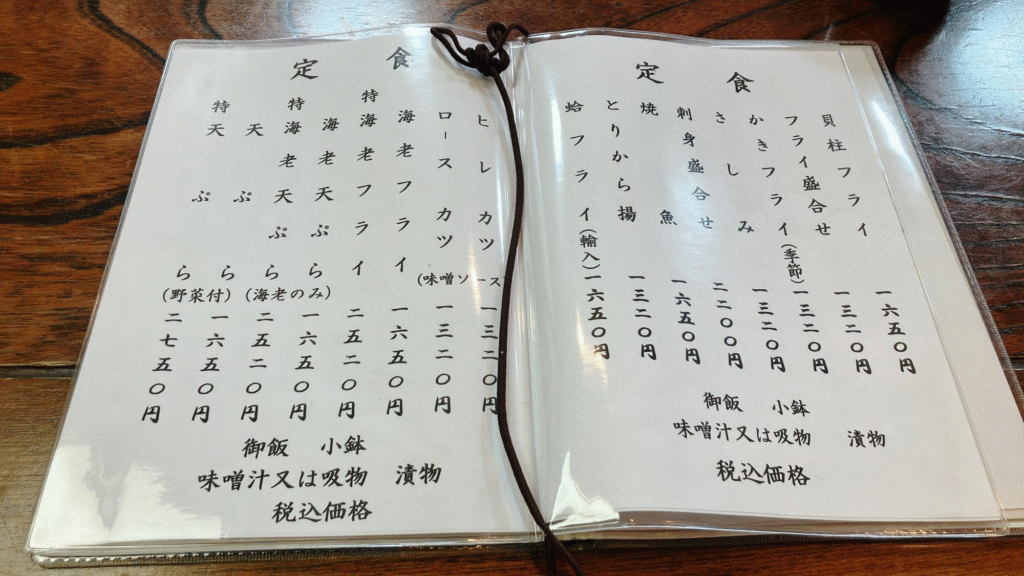 定食
貝柱フライ 一六五〇円
フライ盛合せ 一三二〇円
かきフライ(季節) 一三二〇円
さしみ 一三二〇円
刺身盛合せ 二二〇〇円
焼魚 一六五〇円
とりから揚 一三二〇円
蛤フライ(輸入) 一六五〇円
御飯 小鉢
味噌汁又は吸物 漬物
税込価格
定食
ヒレカツ 一三二〇円
ロースカツ 一三二〇円
(味噌ソース
海老フライ 一六五〇円
特海老フライ 二五二〇円
海老天ぷら 一六五〇円
特海老天ぷら 二五二〇円
(海老のみ)
天ぷら 一六五〇円
特天ぷら 二七五〇円
(野菜付)
御飯 小鉢
味噌汁又は吸物 漬物
税込価格